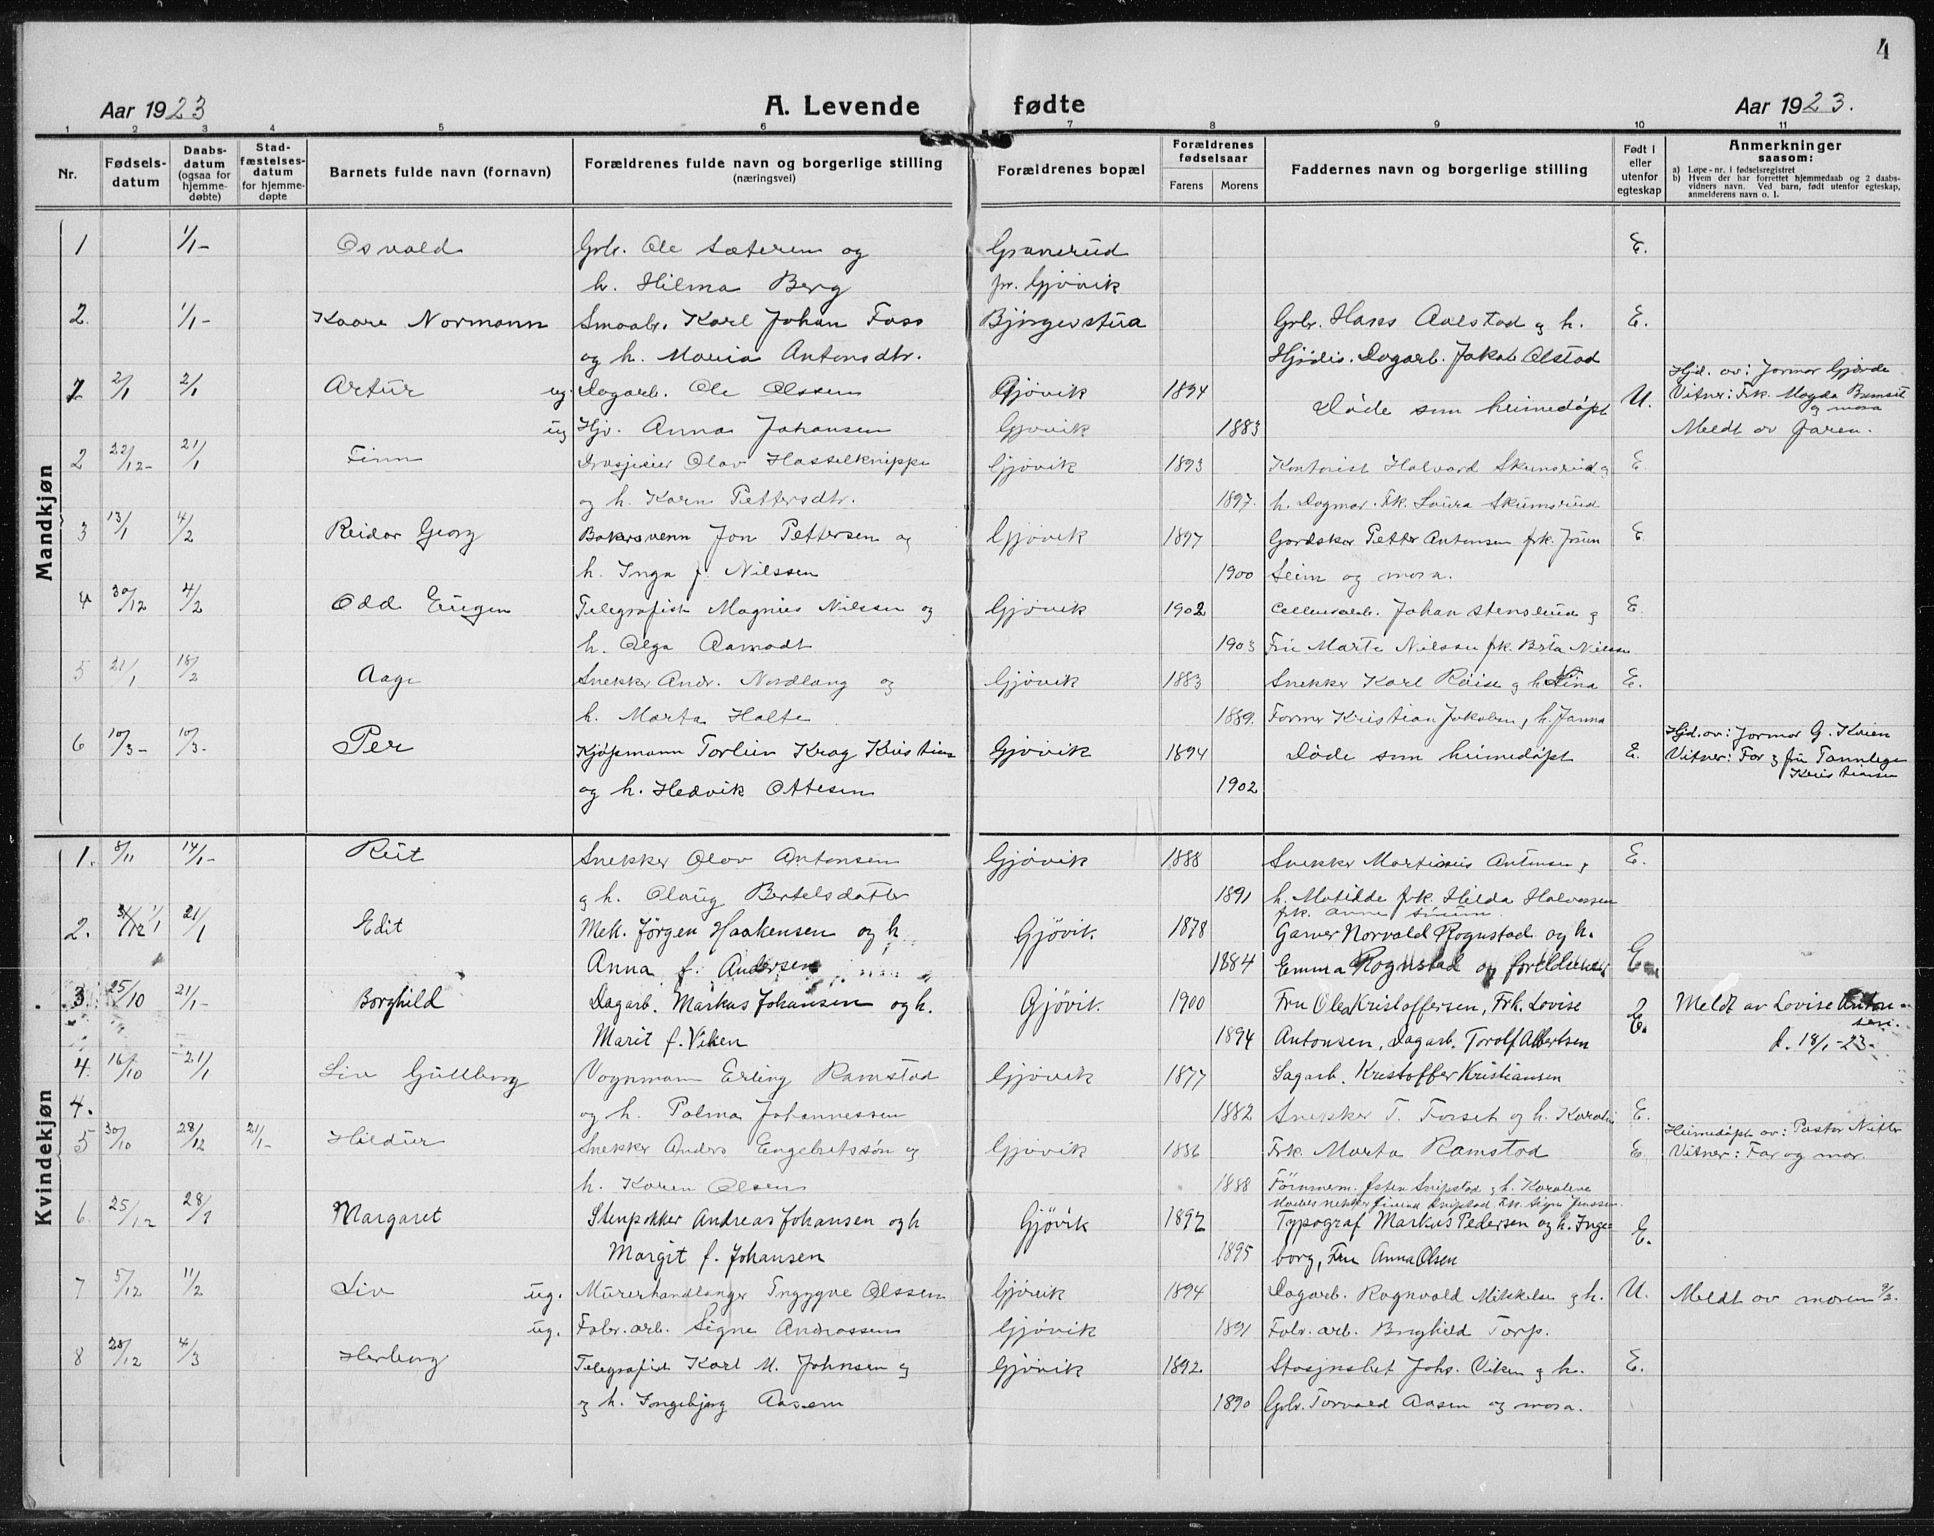 4
Aar 1923
A. Levende fødte
Aar 1923.
1 2 3 4 5 6 7 8 9 10 11
Nr.
Fødselsdatum
Daabsdatum (ogsaa for hjemmedøbte)
Stadfæstelsesdatum for hjemmedøpte
Barnets fulde navn (fornavn)
Forældrenes fulde navn og borgerlige stilling
(næringsvei)
Forældrenes bopæl
Forældrenes fødselsaar
Farens Morens
Faddernes navn og borgerlige stilling
Født i eller utenfor egteskap
Anmerkninger
saasom:
a) Løpe-nr. i fødselsregistret
b) Hvem der har forrettet hjemmedaab og 2 daabsvidners navn. Ved barn, født utenfor egteskap, anmelderens navn o. l.
Mandkjøn
1 1/1- Osvald Grbr. Ole Sæteren og Granerud E.
h. Hilma Berg pr. Gjövik
2. 1/1- Kaare Normann Smaabr. Karl Johan Foss Bjørgerstua Grbr. Hans Aalstad og h. E.
og h. Maria Antonsdtr. Hjødis. Dagarb. Jakob Olstad
Hjd. av: Jormor Gjövde
1 2/1 2/1 Artur ug. Dagarb. Ole Olssen Gjövik 1894 Døde som heimedöpt U. Vitner: Frk. Magda
og mora
ug Hjv. Anna Johansen Gjövik 1883 Meldt av faren.
2 22/12- 21/1 Finn Olav Hasselknippe Gjövik 1893 Kontorist Halvard Skumsrud og E
og h. Karn Pettersdtr. 1897. h. Dagmar. Frk. Laura Skumsrud
3 13/1 4/2 Reidar Georg Bakersvenn Jon Pettersen og Gjövik 1897 Gardskar Petter Antonsen frk. Jörun E
h. Inga f. Nilssen 1900 Seim og mora.
4 30/12 4/2 Odd Eugen Telegrafist Magnus Nilsen og Gjövik 1902 Johan Stenslund og E
h. Olga Aamodt 1903 Fru Marte Nielsen frk. Nielsen
5 21/1 18/2 Aage Snekker Andr. Nordlang og Gjövik 1883 Snekker Karl Röise og h. Stina E.
h. Marta Holte 1889. Former Kristian Jakobsen, h. Janna
Hjd. av: Jormor G. Kvien
6 10/3- 10/3- Per Kjöpmann Torlein Krog Kristians Gjövik 1894 Döde som heimedöpt E. Vitner: Far og fru Tannlege
Kristiansen
og h. Hedvik Ottesen 1902
Kvindekjøn
1. 8/11 14/1- Rut Snekker Olav Antonsen Gjövik 1888 Snekker Martinius Antonsen og E.
og h. Olaug Bertelsdatter 1891 h. Matilde frk. Hilda Halvorsen
frk. Anna
2. 1/1 21/1 Edit Mek. Jörgen Haakensen og h. Gjövik. 1878 Garver Norvald Rognstad og h.
Anna f. Andersen 1884 Emma Rognstad og foreldrene E
3. 25/10 21/1- Borghild Dagarb. Markus Johansen og h. Gjövik. 1900 Fru Olea Kristoffersen, Frk. Lovise E. Meldt av Lovise Antonsen.
Marit f. Viken 1894 Antonsen, Dagarb. Torolf Albertsen d. 18/1-23-
4. 16/10 -21/1 Liv Gullborg Vognmann Erling Ramstad Gjövik 1877 Sagarb. Kristoffer Kristiansen
4. og h. Palma Johannessen 1882 Snekker T. Forset og h. E.
Heimedöpt av: Pastor
5 30/10 28/12 21/1- Hildur Snekker Anders Engebretssön og Gjövik 1886 Frk. Marta Ramstad E. Vitner: Far og mor.
h. Karen Olsen 1888 Snipstad og h. Karoline
6 25/12 28/1 Margaret Stenpokker Andreas Johansen og h Gjövik 1892 Typograf Markus Pedersen og h. Inge- E.
Margit f. Johansen 1895 borg, Fru Anna Olsen
7 5/12 11/2 Liv ug. Murerhandlanger Olssen Gjövik 1894 Dagarb. Ragnvald Mikkelsen og h. U. Meldt av moren 9/2.
ug. Fabr.arb. Signe Andreassen Gjövik 1891 Fabr.arb. Borghild Torp.
8 28/12 4/3 Herborg Telegrafist Karl M. Johnsen og Gjövik 1892 Johs. Viken og h. E.
og h. Ingebjörg Aasen 1890 Grbr. Torvald Aasen og mora.